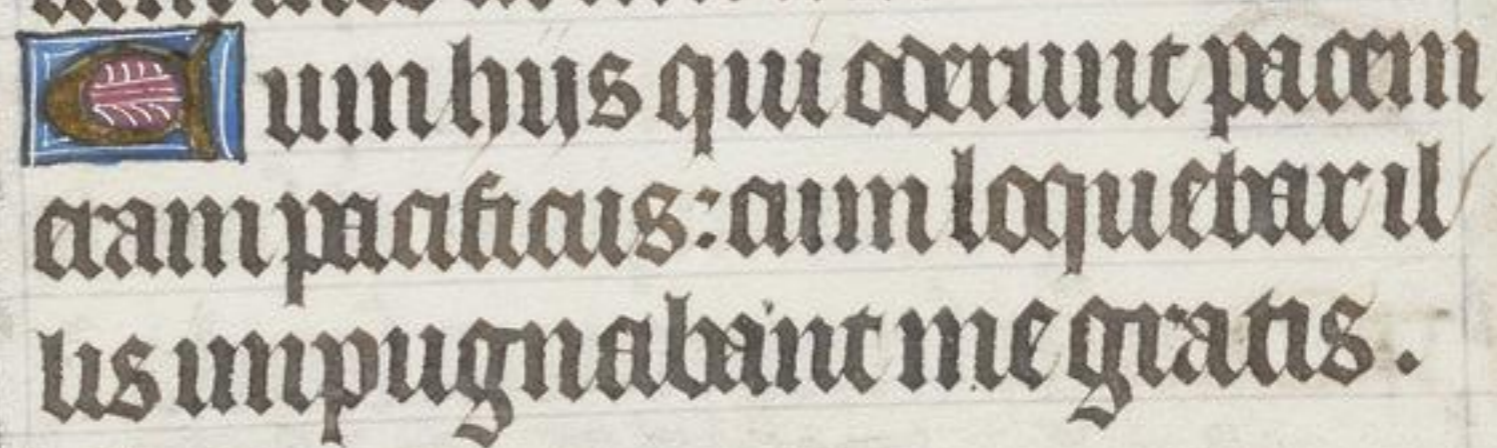 Cum hijs qui oderunt pacem
eram pacificus: cum loquebar il
lis inpugnabant me gratis.